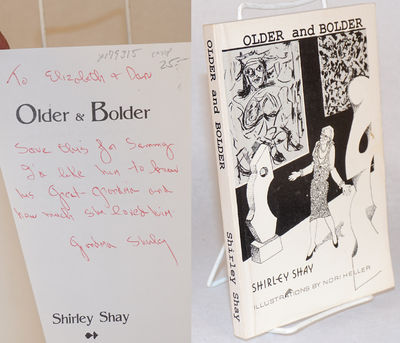 yr79315 card
25-
To Elizabeth & Dan
Older & Bolder
Save this for Sammy
I'd like him to know
his Great-Grandma and
how much she loved him
Grandma Shirley
Shirley Shay
OLDER and BOLDER
Shirley Shay
OLDER and BOLDER
SHIRLEY SHAY
ILLUSTRATIONS BY NORI HELLER